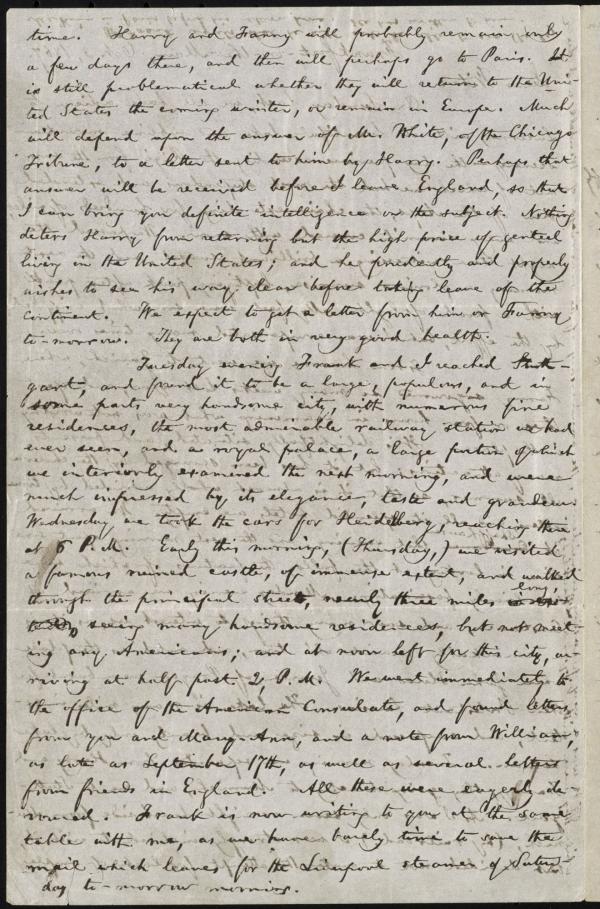 time. Harry and Fanny will probably remain only
a few days there, and then will perhaps go to Paris. It
is still problematical whether they will return to the Uni-
ted States the coming winter, or remain in Europe. Much
will depend upon the answer of Mr. White, of the Chicago
Tribune, to a letter sent to him by Harry. Perhaps that
answer will be received before I leave England, so that
I can bring you definite intelligence on the subject. Nothing
deters Harry from returning but the high price of genteel
living in the United States; and he prudently and properly
wishes to see his way clear before taking leave of the
continent. We expect to get a letter from him or Fanny
to-morrow. They are both in very good health.
Tuesday evening Frank and I reached Stutt-
gart, and found it to be a large, populous, and in
some parts very handsome city, with numerous fine
residences, the most admirable railway station we had
ever seen, and a royal palace, a large portion of which
we interiorly examined the next morning, and were
much impressed by its elegance, taste and grandeur.
Wednesday we took the cars for Heidelberg, reaching there
at 6 P.M. Early this morning, (Thursday,) we visited
a famous ruined castle, of immense extent, and walked
through the principal street, nearly three miles long,
seeing many handsome residences, but not meet-
ing any Americans; and at noon left for this city, ar-
riving at half past 2, P.M. We went immediately to
the office of the American Consulate, and found letters
from you and Mary-Ann, and a note from William,
as late as September 17th, as well as several letters
from friends in England. All these were eagerly de-
voured. Frank is now writing to you at the same
table with me, as we have barely time to save the
mail which leaves for the Liverpool steamer of Satur-
day to-morrow morning.